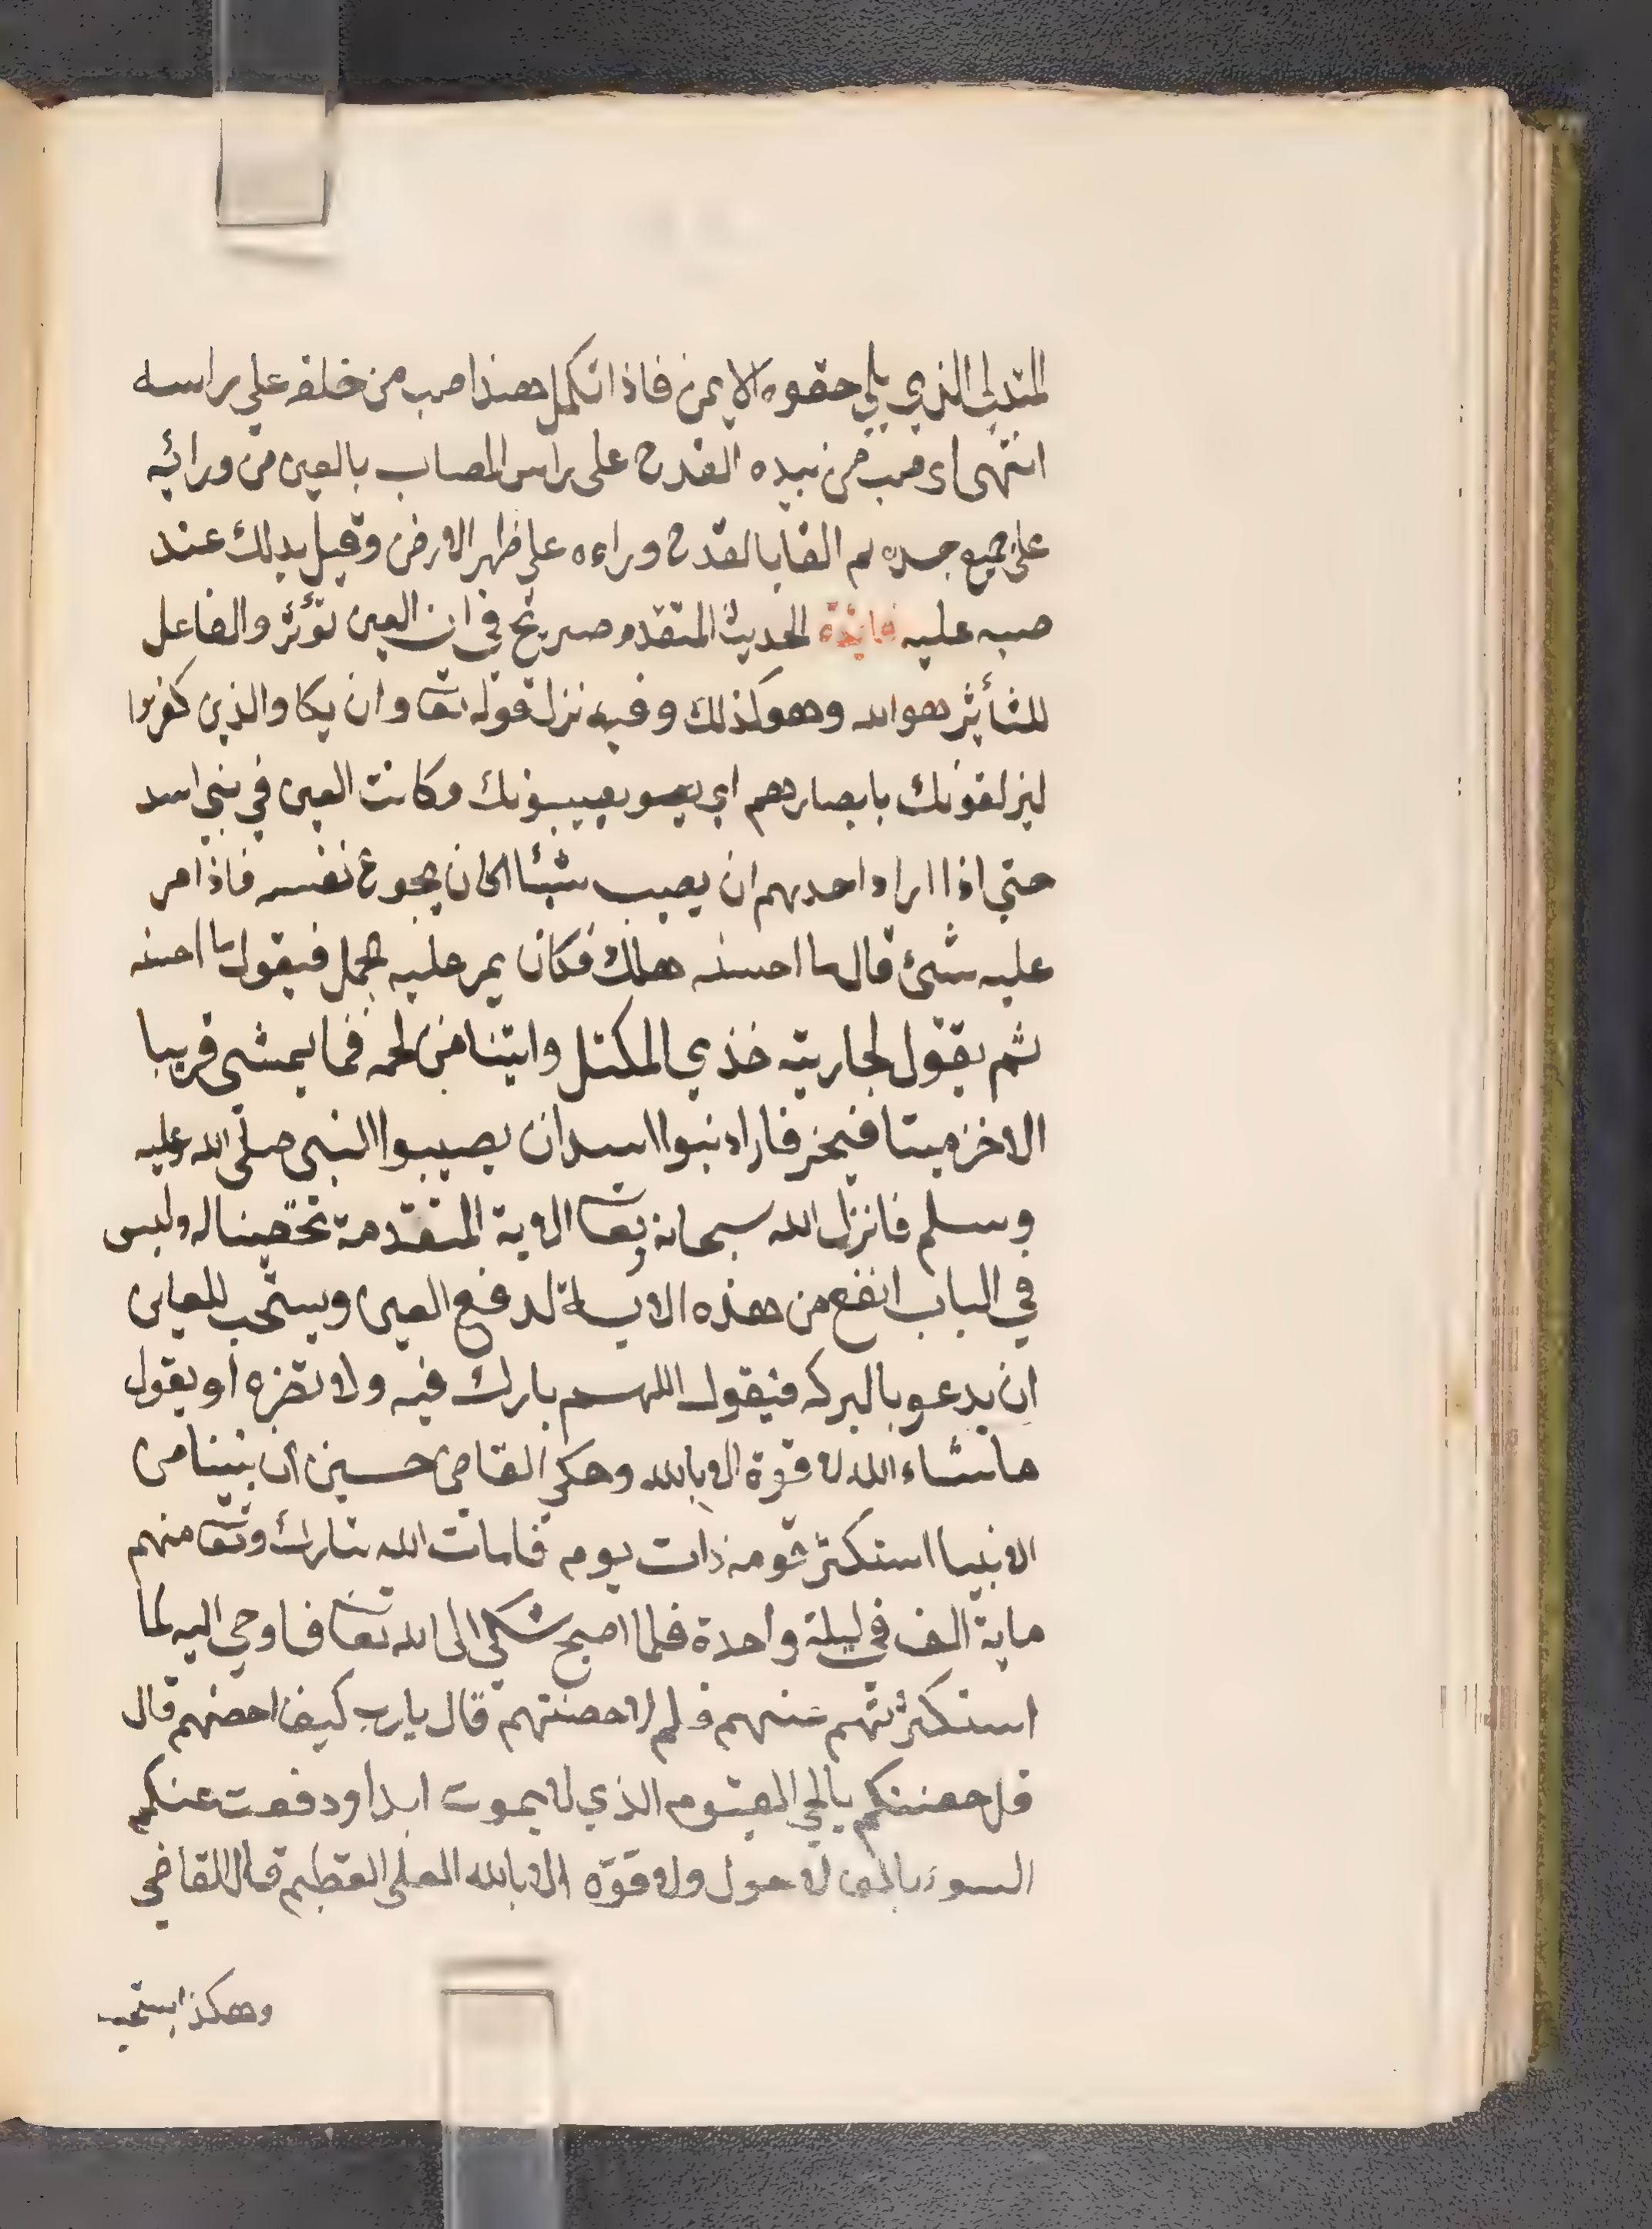 المتدلي الذي يلي حقوه الايمن فاذا تكمل هذا صب من خلفه علي راسه
انتهى اي صب من بيده القدح على راس المصاب بالعين من ورائه
على جميع جسده ثم القا بالقدح وراءه علي ظهر الارض وقيل بذلك عند
صبه عليه فائدة الحديث المتقدم صريح في ان العين تؤثر والفاعل
للتأثير هو الله وهو كذلك وفيه نزل قوله تعا وان يكاد الذين كفروا
ليزلقونك بابصارهم اي يعيبونك وكانت العين في بني اسد
حتي اذا اراد احدهم ان يصيب شيئا كان يجوع نفسه فاذا مر
عليه شئ قال ما احسنه هلك فكان يمر عليه الجمل فيقول ما احسنه
ثم يقول لجاريته خذي المكتل واتينا من لحمه فما يمشي قريبا
الا خر ميتا فينحر فاراد بنوا اسد ان يصيبوا النبي صلى الله عليه
وسلم فانزل الله سبحانه وتعا الاية المتقدمة تحصينا له وليس
في الباب انفع من هذه الاية لدفع العين ويستحب للعاين
ان يدعو بالبركه فيقول اللهم بارك فيه ولا تضره او يقول
ما شاء الله لا قوة الا بالله وحكي القاضى حسين ان نبينا من
الانبيا استكثر قومه ذات يوم فامات الله تبارك وتعا منهم
ماية الف في ليلة واحدة فلما اصبح شكي الى الله تعا فاوحي اليه لما
استكثرتهم عنهم فلم لا حصنتهم قال يا رب كيف احصنهم قال
قل حصنتكم بالحي القيوم الذي لا يموت ابدا ودفعت عنكم
السوء بالف لا حول ولا قوة الا بالله العلي العظيم قال القاضي
وهكذا يستحب